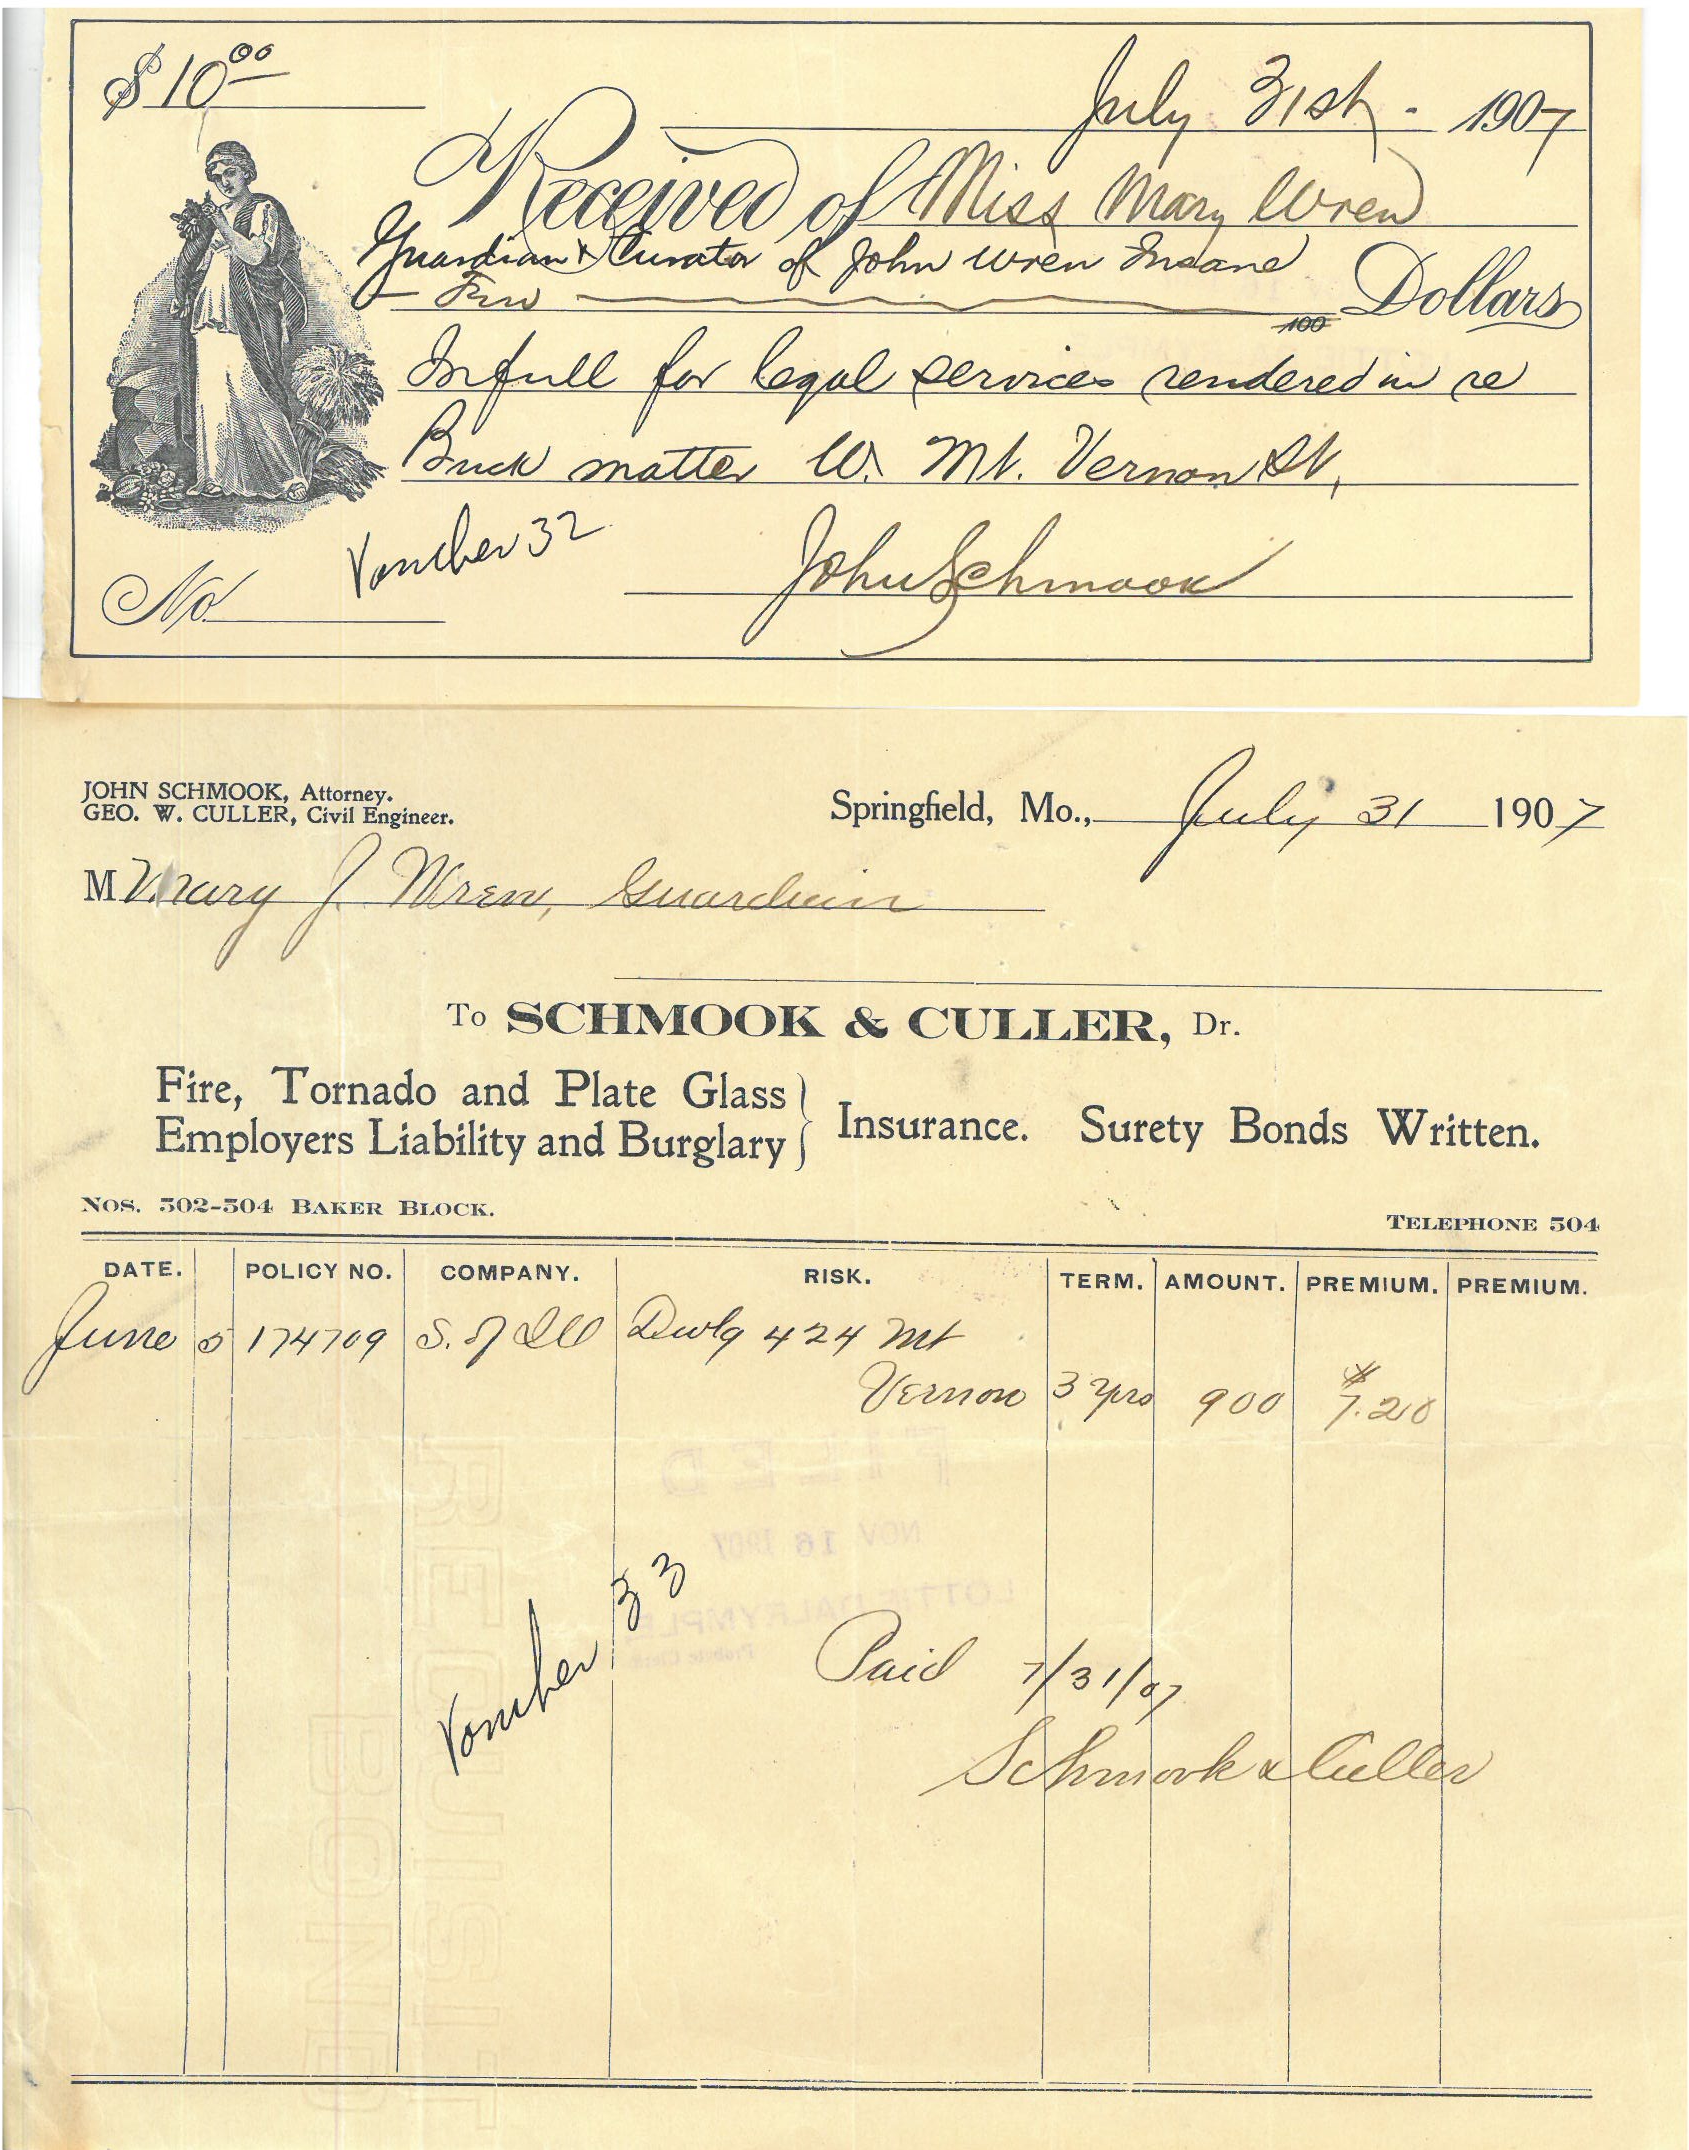 $10.00
July 31st - 1907
Received of Miss Mary Wren
Guardian & Curator of John Wren Insane
Ten /100 Dollars
In full for legal services rendered in re
Buck matter W. Mt. Vernon St,
Voucher 32
No. John Schmook
JOHN SCHMOOK, Attorney.
GEO. W. CULLER, Civil Engineer.
Springfield, Mo., July 31 1907
M Mary J. Wren, Guardian
To SCHMOOK & CULLER, Dr.
Fire, Tornado and Plate Glass
Employers Liability and Burglary
Insurance. Surety Bonds Written.
Nos. 502-504 Baker Block.
Telephone 504
DATE. POLICY NO. COMPANY. RISK. TERM. AMOUNT. PREMIUM. PREMIUM.
June 5 174709 S. of Ill Dwlg 424 Mt
Vernon 3 yrs 900 $7.20
FILED
NOV 16 1907
LOTTIE DALRYMPLE
Probate Clerk
Voucher 33
Paid 7/31/07
Schmook & Culler
BOND